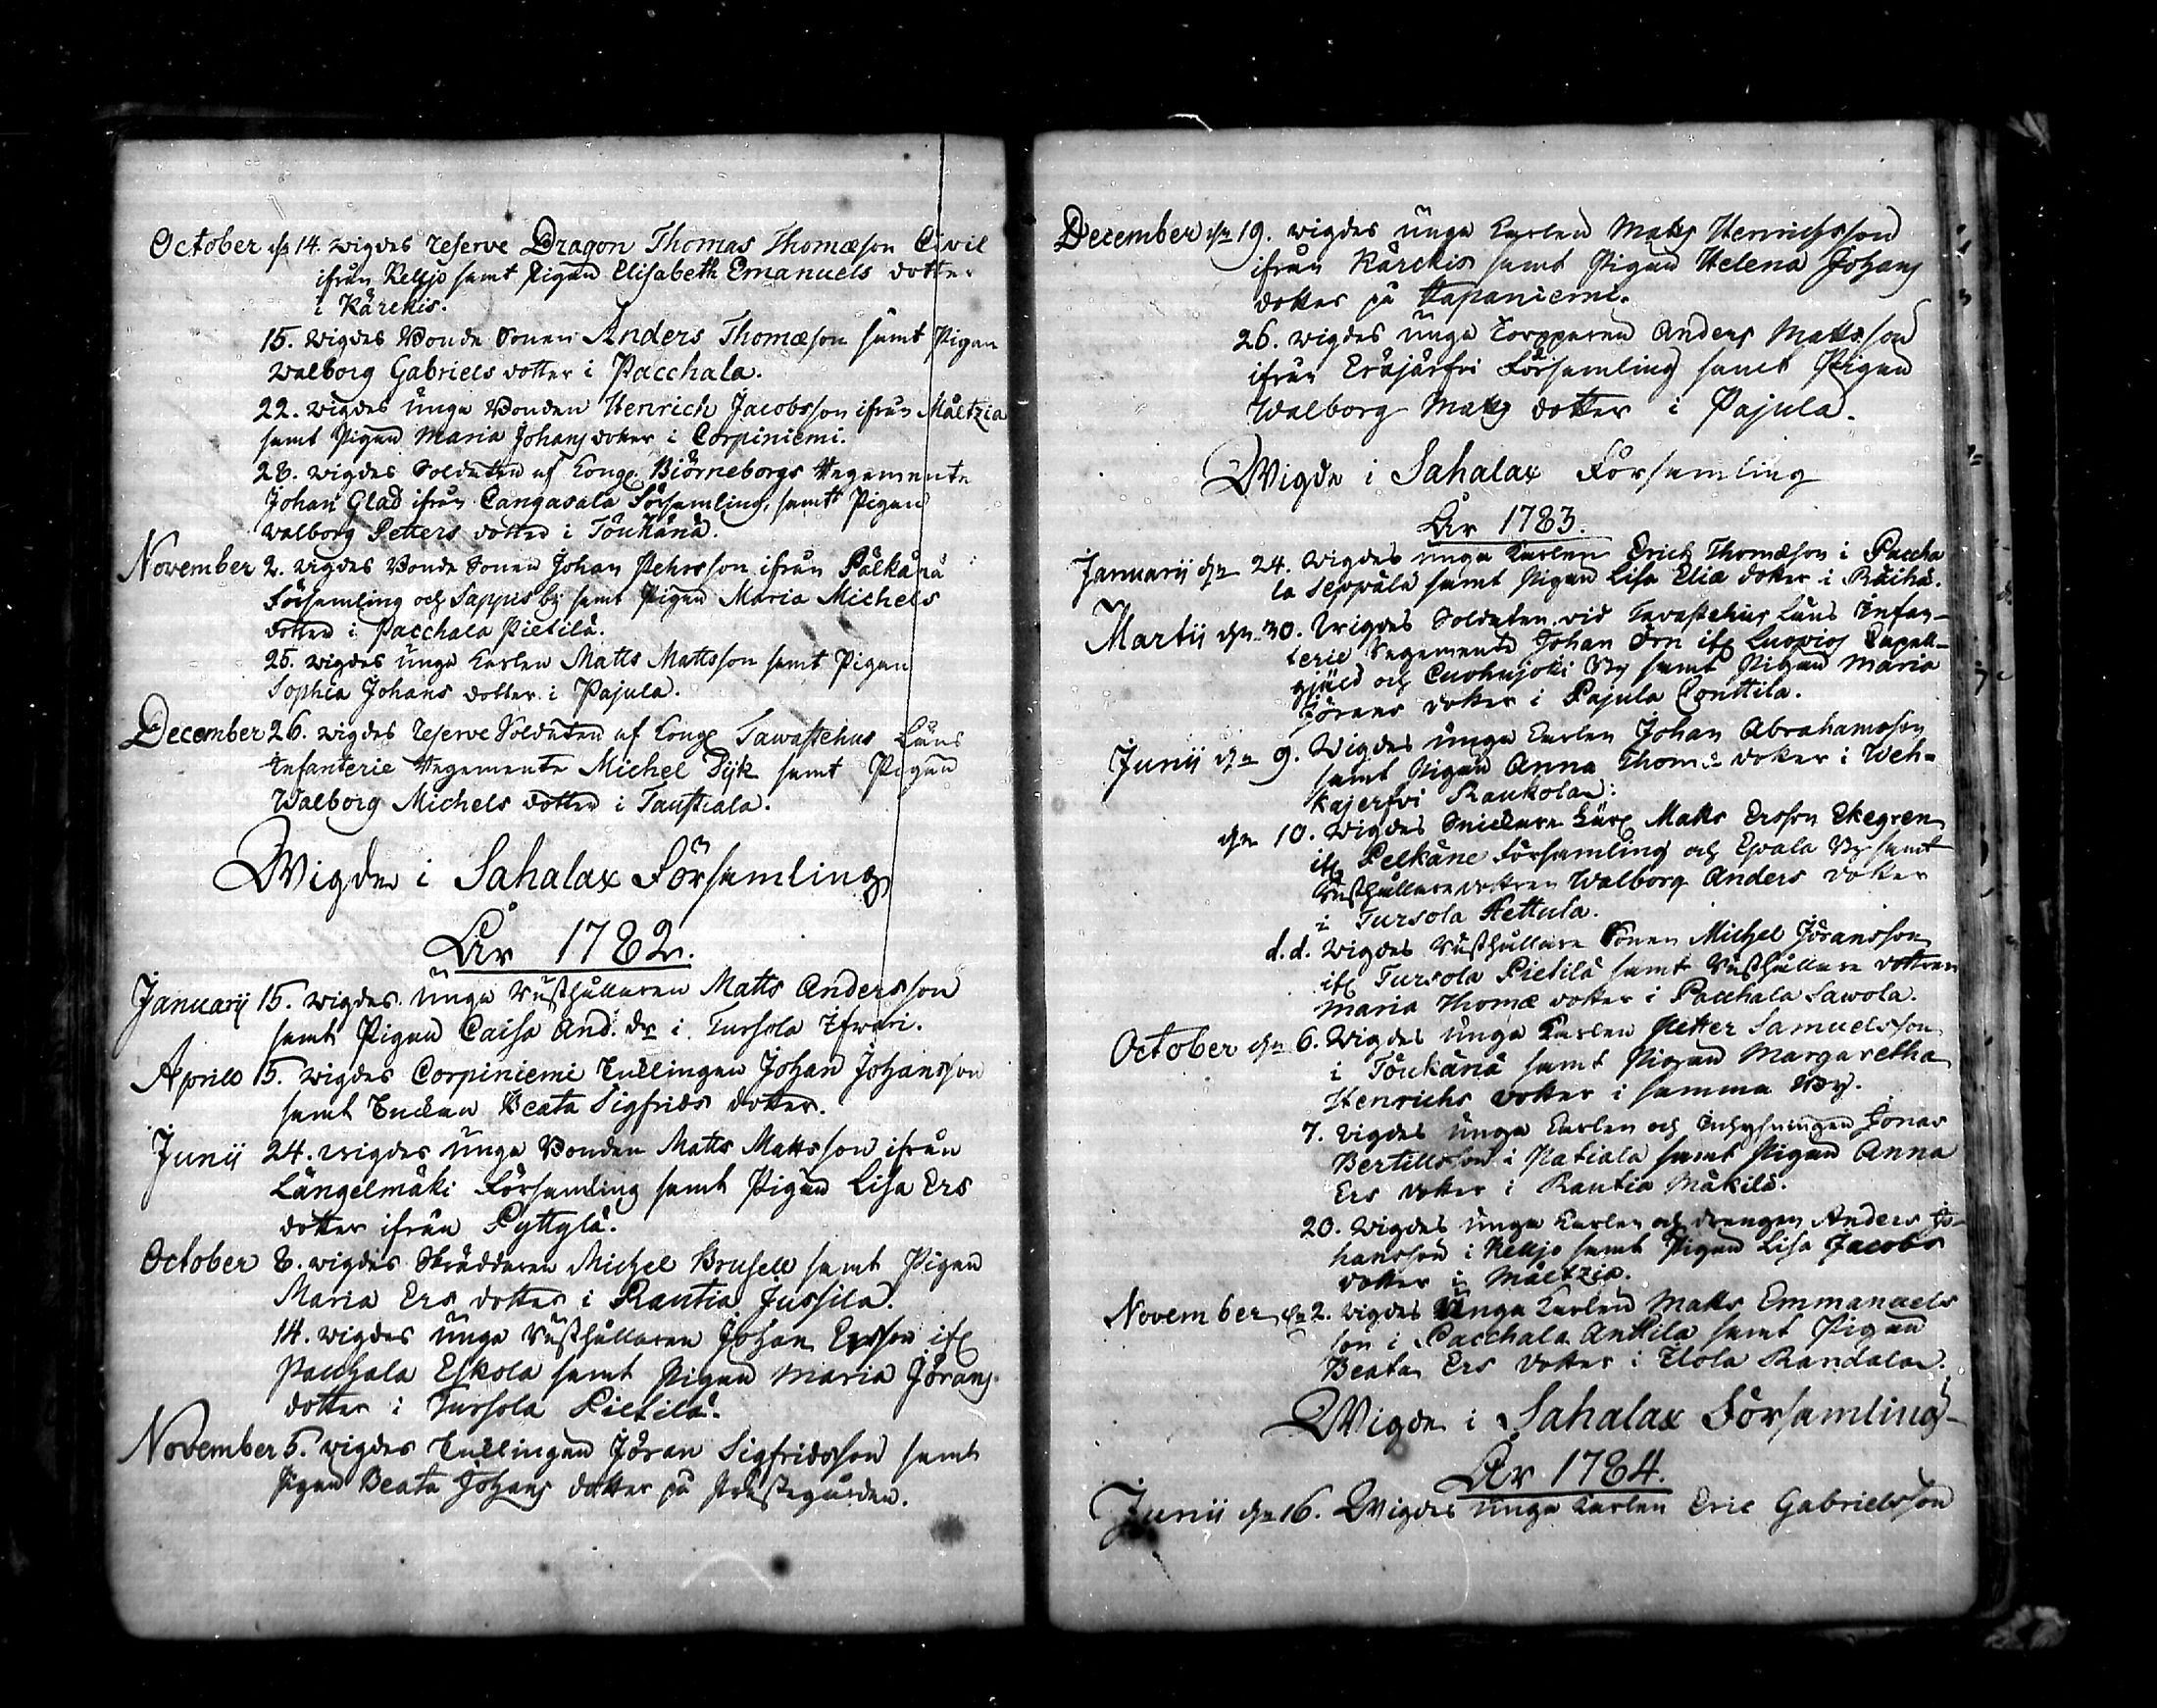 October d. 14. wigdes reserve Dragon Thomas Thomæson Civil
ifrån Keljo samt Pigan Elisabeth Emanuels dotter
i Kärckis.
15. wigdes Bonde Sonen Anders Thomæson samt Pigan
Walborg Gabriels dotter i Pacchala.
22. wigdes Unga Bonden Henrich Jacobsson ifrån Måltzia
samt Pigan Maria Johans dotter i Corpiniemi.
28. wigdes Soldaten af Kongl Biörneborgs Regemente
Johan Glad ifrån Cangasala Församling, samt Pigan
Walborg Petters dotter i Töukänä.
November 2. wigdes Bonde Sonen Johan Pehrsson ifrån Pälkänä
Församling och Sappis by samt Pigan Maria Michels
dotter i Pacchala Pietilä.
25. wigdes Unga Karlen Matts Mattsson samt Pigan
Sophia Johans dotter i Pajula.
December 26. wigdes reserve Soldaten af Kongl Tawastehus Läns
Infanterie Regemente Michel Dÿk samt Pigan
Walborg Michels dotter i Taustiala.
Wigde i Sahalax Församling
År 1782.
Januarij 15. wigdes Unga Rusthållaren Matts Andersson
samt Pigan Caisa And. dr i Tursola
Aprill 5. wigdes Corpiniemi Enklingen Johan Johansson
samt Enckan Beata Sigfrids dotter.
Junij 24. wigdes Unga Bonden Matts Mattsson ifrån
Längelmäki Församling samt Pigan Lisa Ers
dotter ifrån Pyttylä.
October 8. wigdes Skräddaren Michel Brusell samt Pigan
Maria Ers dotter i Rautia Jussila.
14. wigdes Unga Rusthållaren Johan Ersson ifl
Pacchala Eskola samt Pigan Maria Jörans
dotter i Tursola Pietilä.
November 5. wigdes Enklingen Jöran Sigfridsson samt
Pigan Beata Johans dotter på Prestegården.
December dn 19. wigdes Unga Karlen Matts Henrichsson
ifrån Kärckis samt Pigan Helena Johans
dotter på Hapaniemi.
26. wigdes Unga Torpparen Anders Mattsson
ifrån Eräjärfvi Församling samt Pigan
Walborg Matts dotter i Pajula.
Wigde i Sahalax Församling
År 1783.
Januarij dn 24. Wigdes Unga Karlen Erich Thomæson i Paccha
la Seppälä samt Pigan Lisa Eliæ dotter i Räihä.
Martij dn 30. Wigdes Soldaten vid Tavastehus Läns Infan-
terie Regemente Johan Örn ifl Luopiois Capell-
gjäld och Cuohujoki By samt Pigan Maria
Jörans dotter i Pajula Conttila.
Junij dn 9. Wigdes Unga Karlen Johan Abrahamsson
samt Pigan Anna Thomæ dotter i Weh-
kajerfvi Raukola:
dn 10. Wigdes Snickare Lärl Matts Ersson Ekegren
ifl Pelkäne Församling och Epala By samt
Rusthållaredottren Walborg Anders dotter
i Tursola Pettula.
d. d. Wigdes Rusthållare Sonen Michel Jöransson
ifl Tursola Pietilä samt Rusthållare dottren
Maria Thomæ dotter i Pacchala Sawola.
October dn 6. Wigdes Unga Karlen Petter Samuelsson
i Töukänä samt Pigan Margaretha
Henrichs dotter i samma By.
7. Wigdes Unga Karlen och Inhysningen Jonas
Bertillsson i Patiala samt Pigan Anna
Ers dotter i Rautia Mäkilä.
20. Wigdes Unga Karlen och drengen Anders Jo-
hansson i Keljo samt Pigan Lisa Jacobs
dotter i Måltzia.
November dn 2. wigdes Unga Karlen Matts Emmanuels
son i Pacchala Anttila samt Pigan
Beata Ers dotter i Ilola Randala.
Wigde i Sahalax Församling
År 1784.
Junij dn 16. Wigdes Unga Karlen Eric Gabrielsson